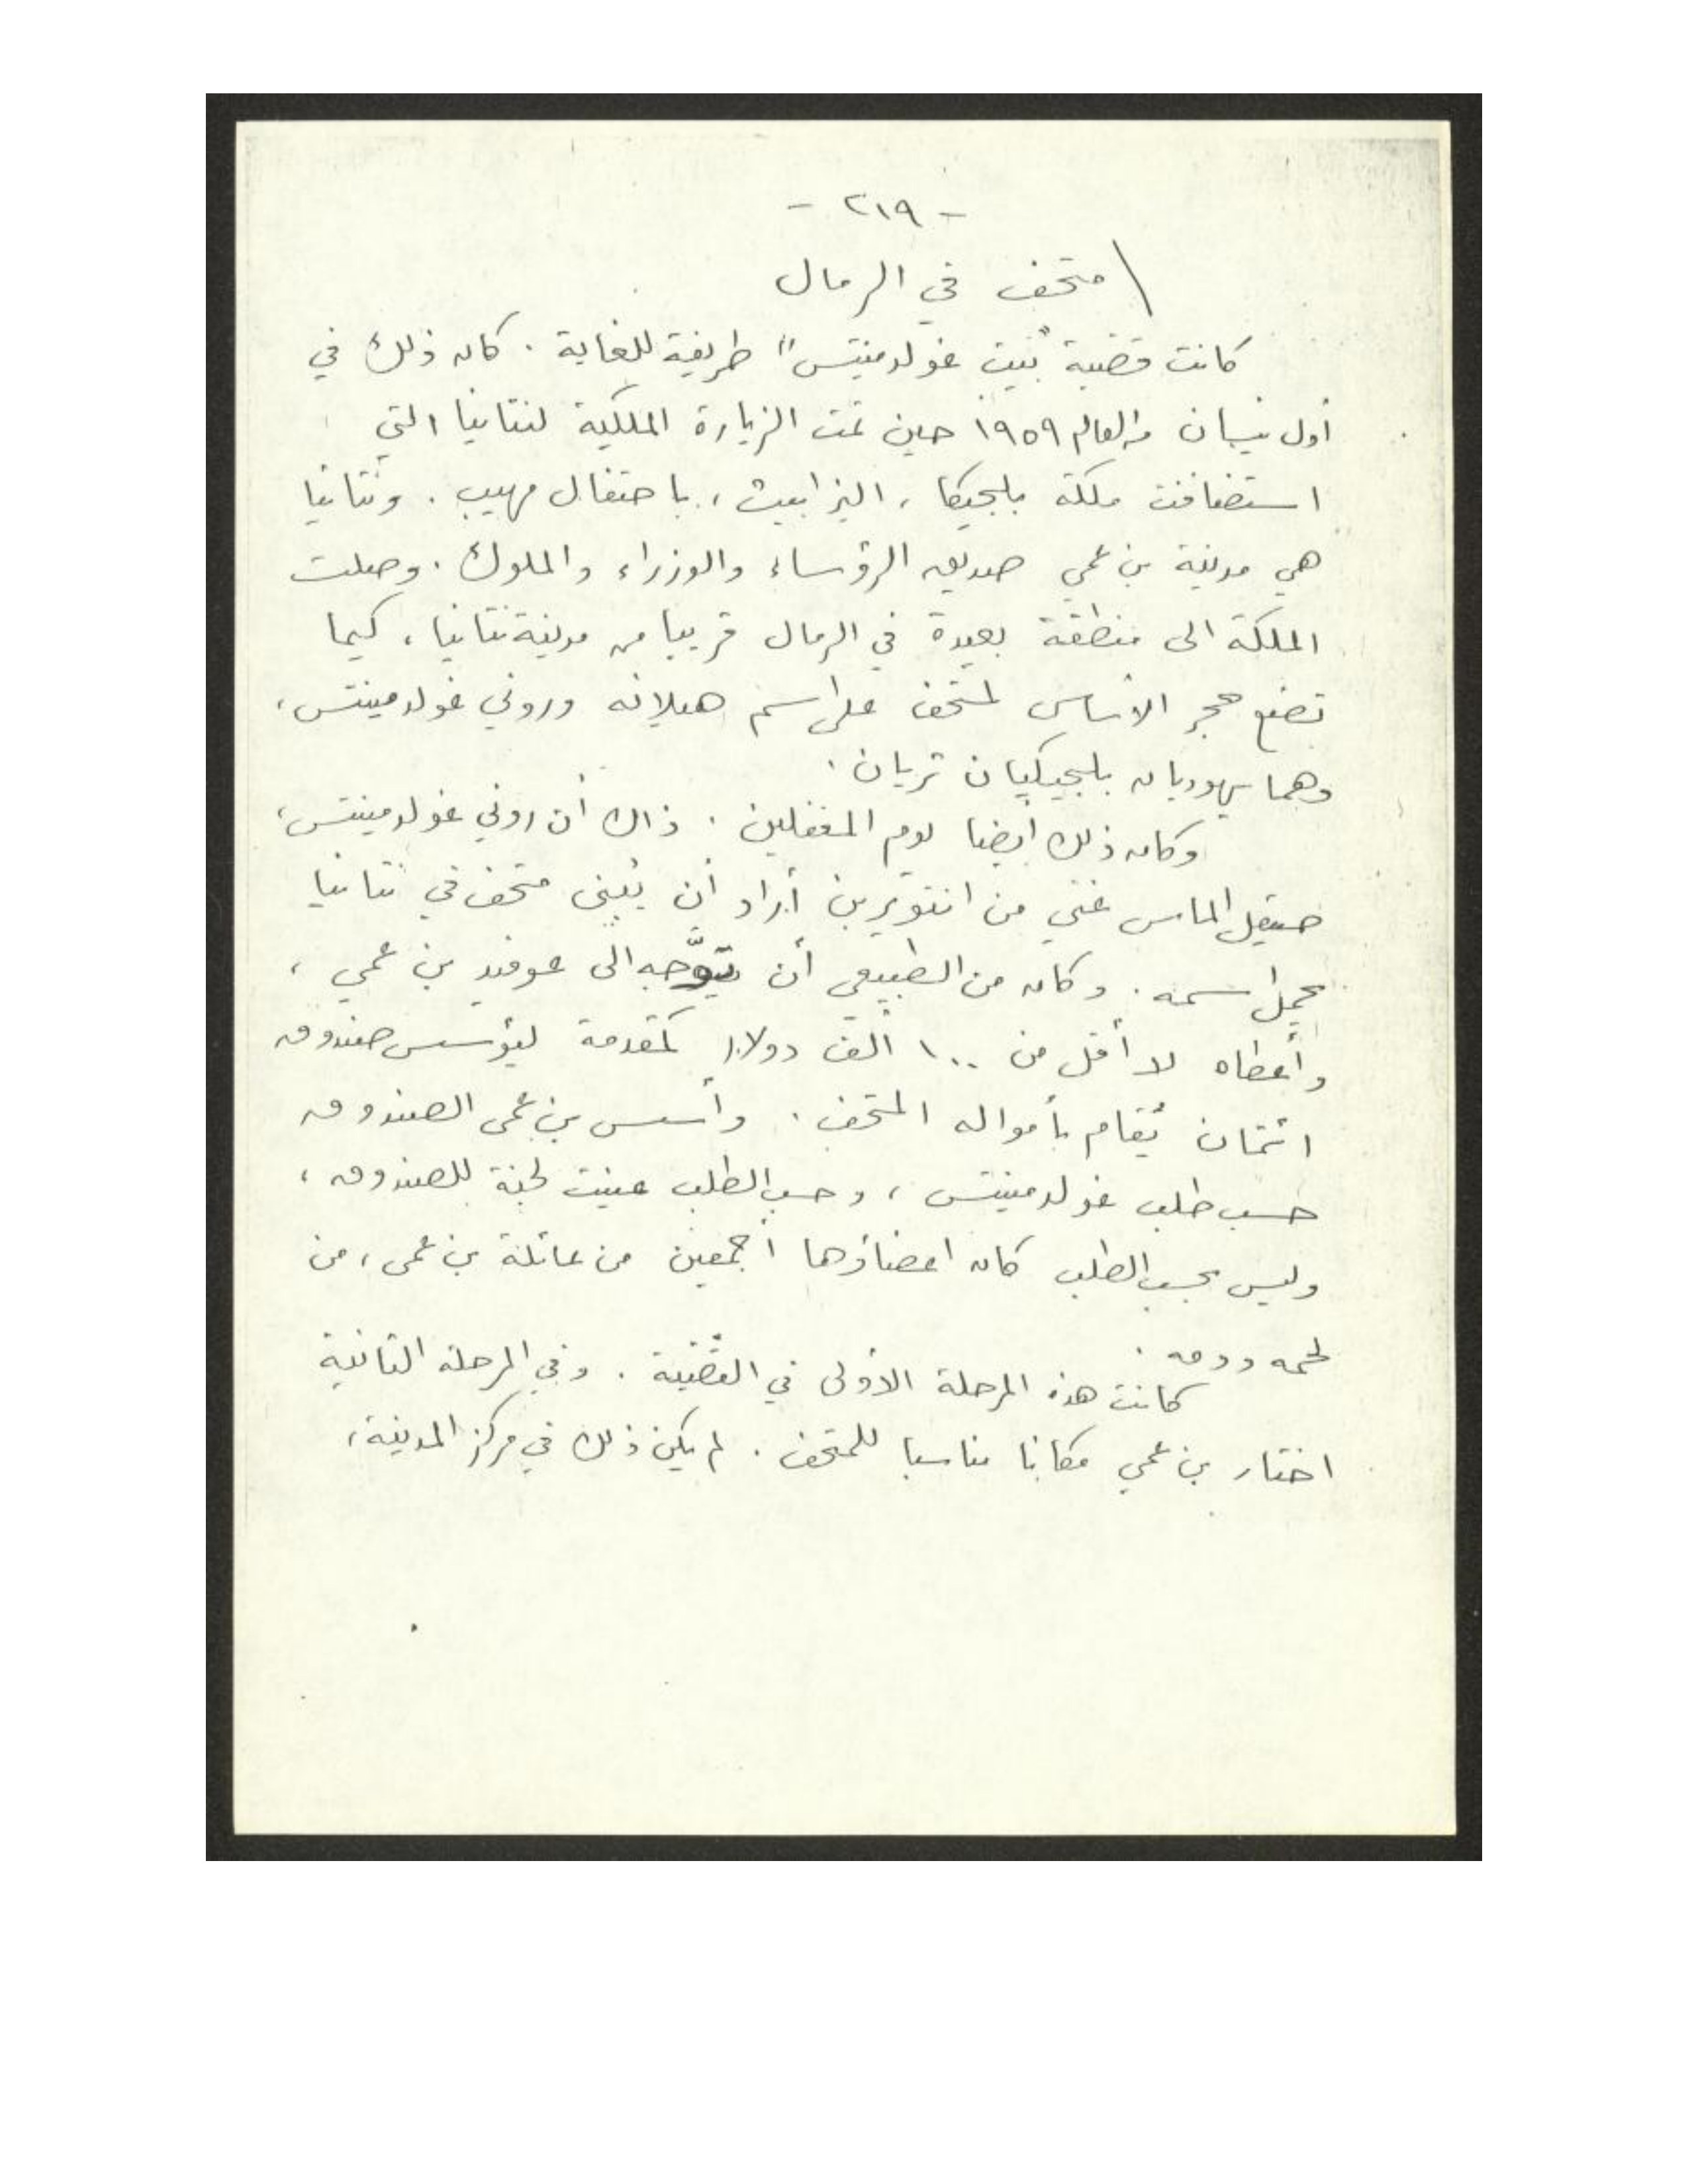 - ٢١٩ -
متحف في الرمال
كانت قضية "بيت غولدمينتس" طريفة للغاية. كان ذلك في
أول نيسان من العام ١٩٥٩ حين تمت الزيارة الملكية لنتانيا التي
استضافت ملكة بلجيكا، اليزابيث، باحتفال مهيب. ونتانيا
هي مدينة بن عمي صديق الرؤساء والوزراء والملوك. وصلت
الملكة الى منطقة بعيدة في الرمال قريبا من مدينة نتانيا، كيما
تضع حجر الاساس لمتحف على اسم هيلانه وروني غولدمينتس،
وهما يهوديان بلجيكيان ثريان.
وكان ذلك أيضا يوم المغفلين. ذاك أن روني غولدمينتس،
صيقل الماس غني من انتويربن أراد أن يُبنى متحف في نتانيا
يحمل اسمه. وكان من الطبيعي أن يتوّجه الى عوفيد بن عمي،
وأعطاه لا أقل من ١٠٠ ألف دولار كمقدمة ليؤسس صندوق
ائتمان يُقام بأمواله المتحف. وأسس بن عمى الصندوق
حسب طلب غولدمينتس، وحسب الطلب عينت لجنة للصندوق،
وليس بحسب الطلب كان اعضاؤها أجمعين من عائلة بن عمى، من
لحمه ودمه.
كانت هذه المرحلة الأولى في القضية. وفي المرحلة الثانية
اختار بن عمي مكانا مناسبا للمتحف. لم يكن ذلك في مركز المدينة،